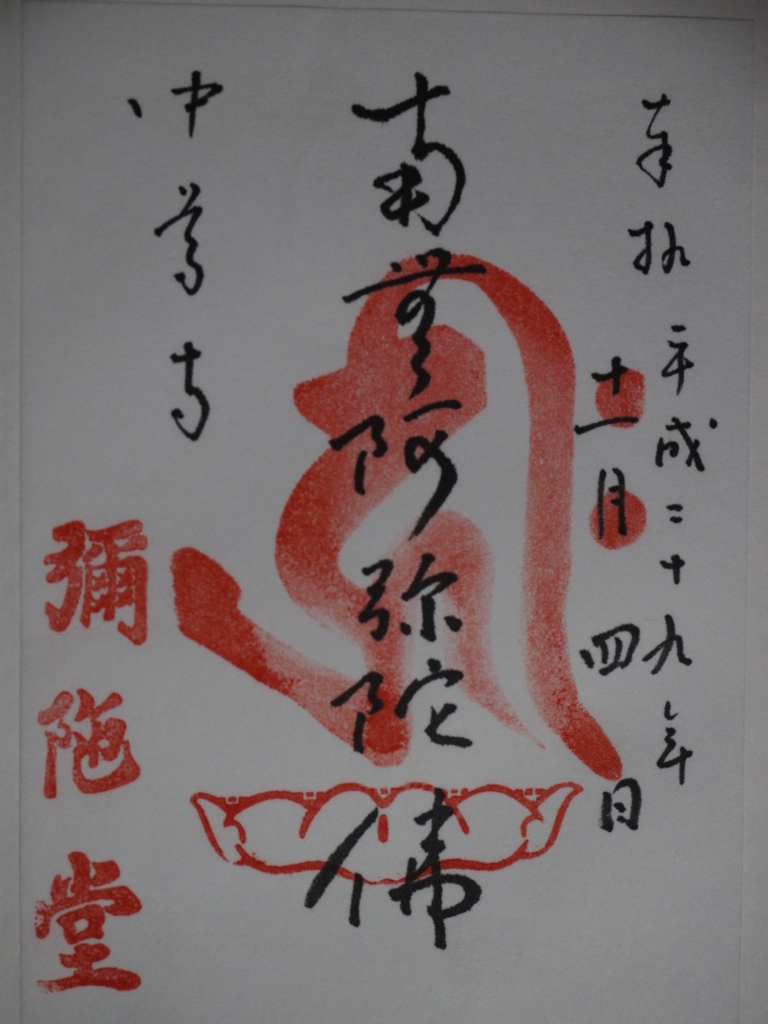 奉拝
平成二十九年
十一月四日
南無阿弥陀佛
中尊寺
彌陁堂